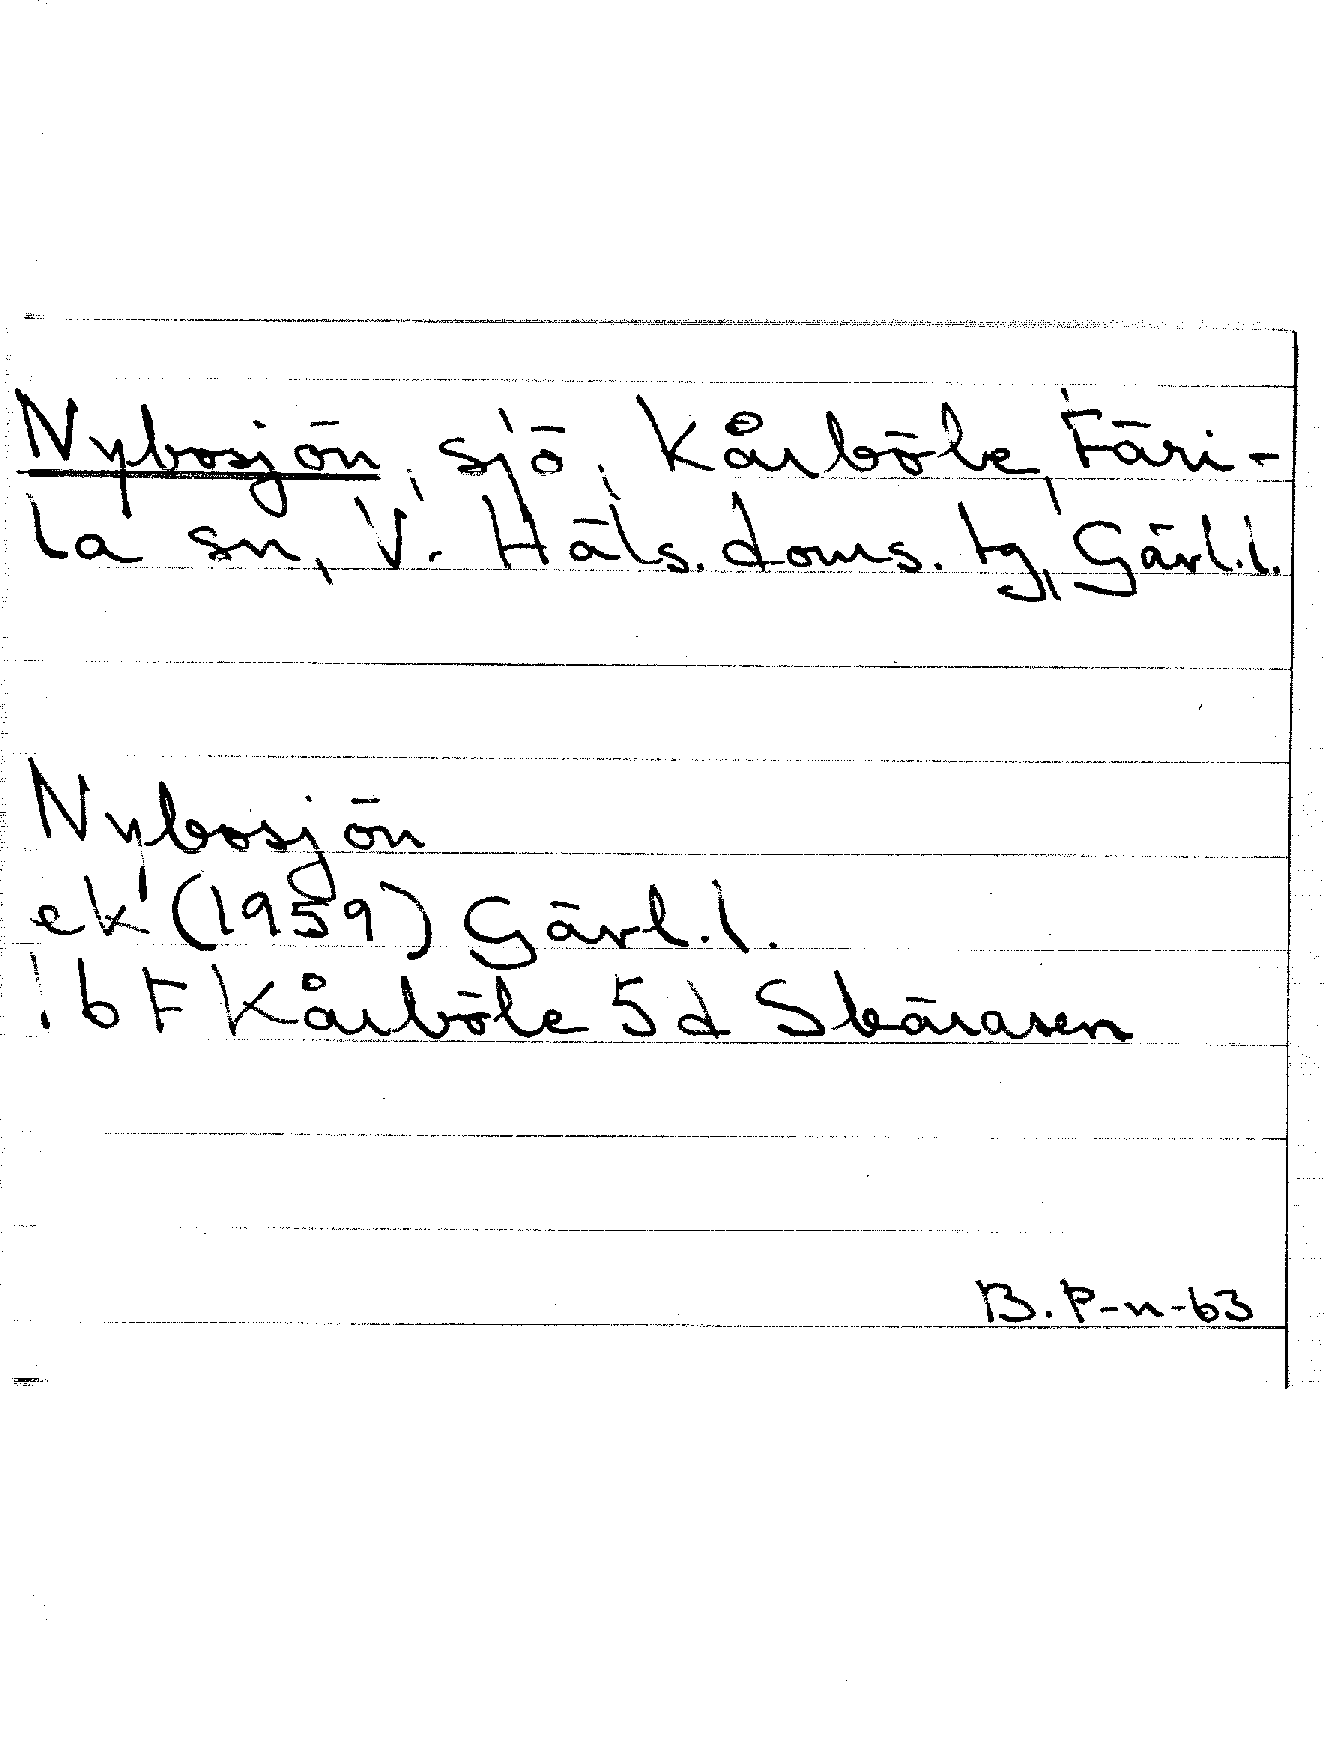 Nybosjön, sjö, Kårböle, Färi-
la sn, V. Häls. doms. tg, Gävl.l.
Nybosjön
ek (1959) Gävl.l.
16F Kårböle 5d Skäråsen
B.P-n-63